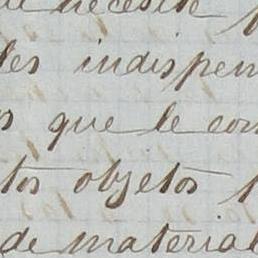 necesite
les indispen
s que le con
tos objetos
de material